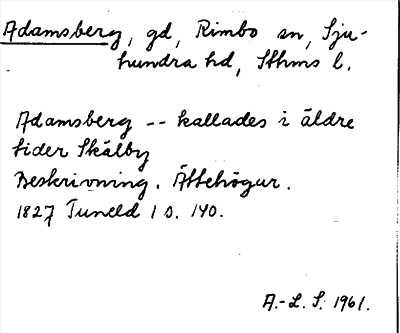 Adamsberg, gd, Rimbo sn, Sju-
hundra hd, Sthms l.
Adamsberg -- kallades i äldre
tider Skålby
Beskrivning. Ättehögar.
1827 Tuneld 1 s. 140.
A.-L. S. 1961.